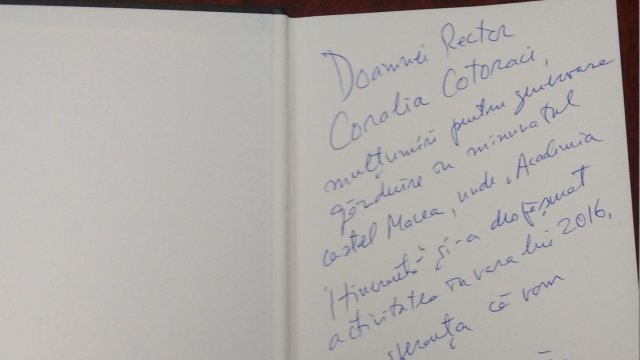 Doamnei Rector
Coralia Cotoraci,
mulțumiri pentru generoasa
găzduire în minunatul
castel Macea, unde „Academia
Itinerantă" și-a desfășurat
activitatea în vara lui 2016,
speranța că vom